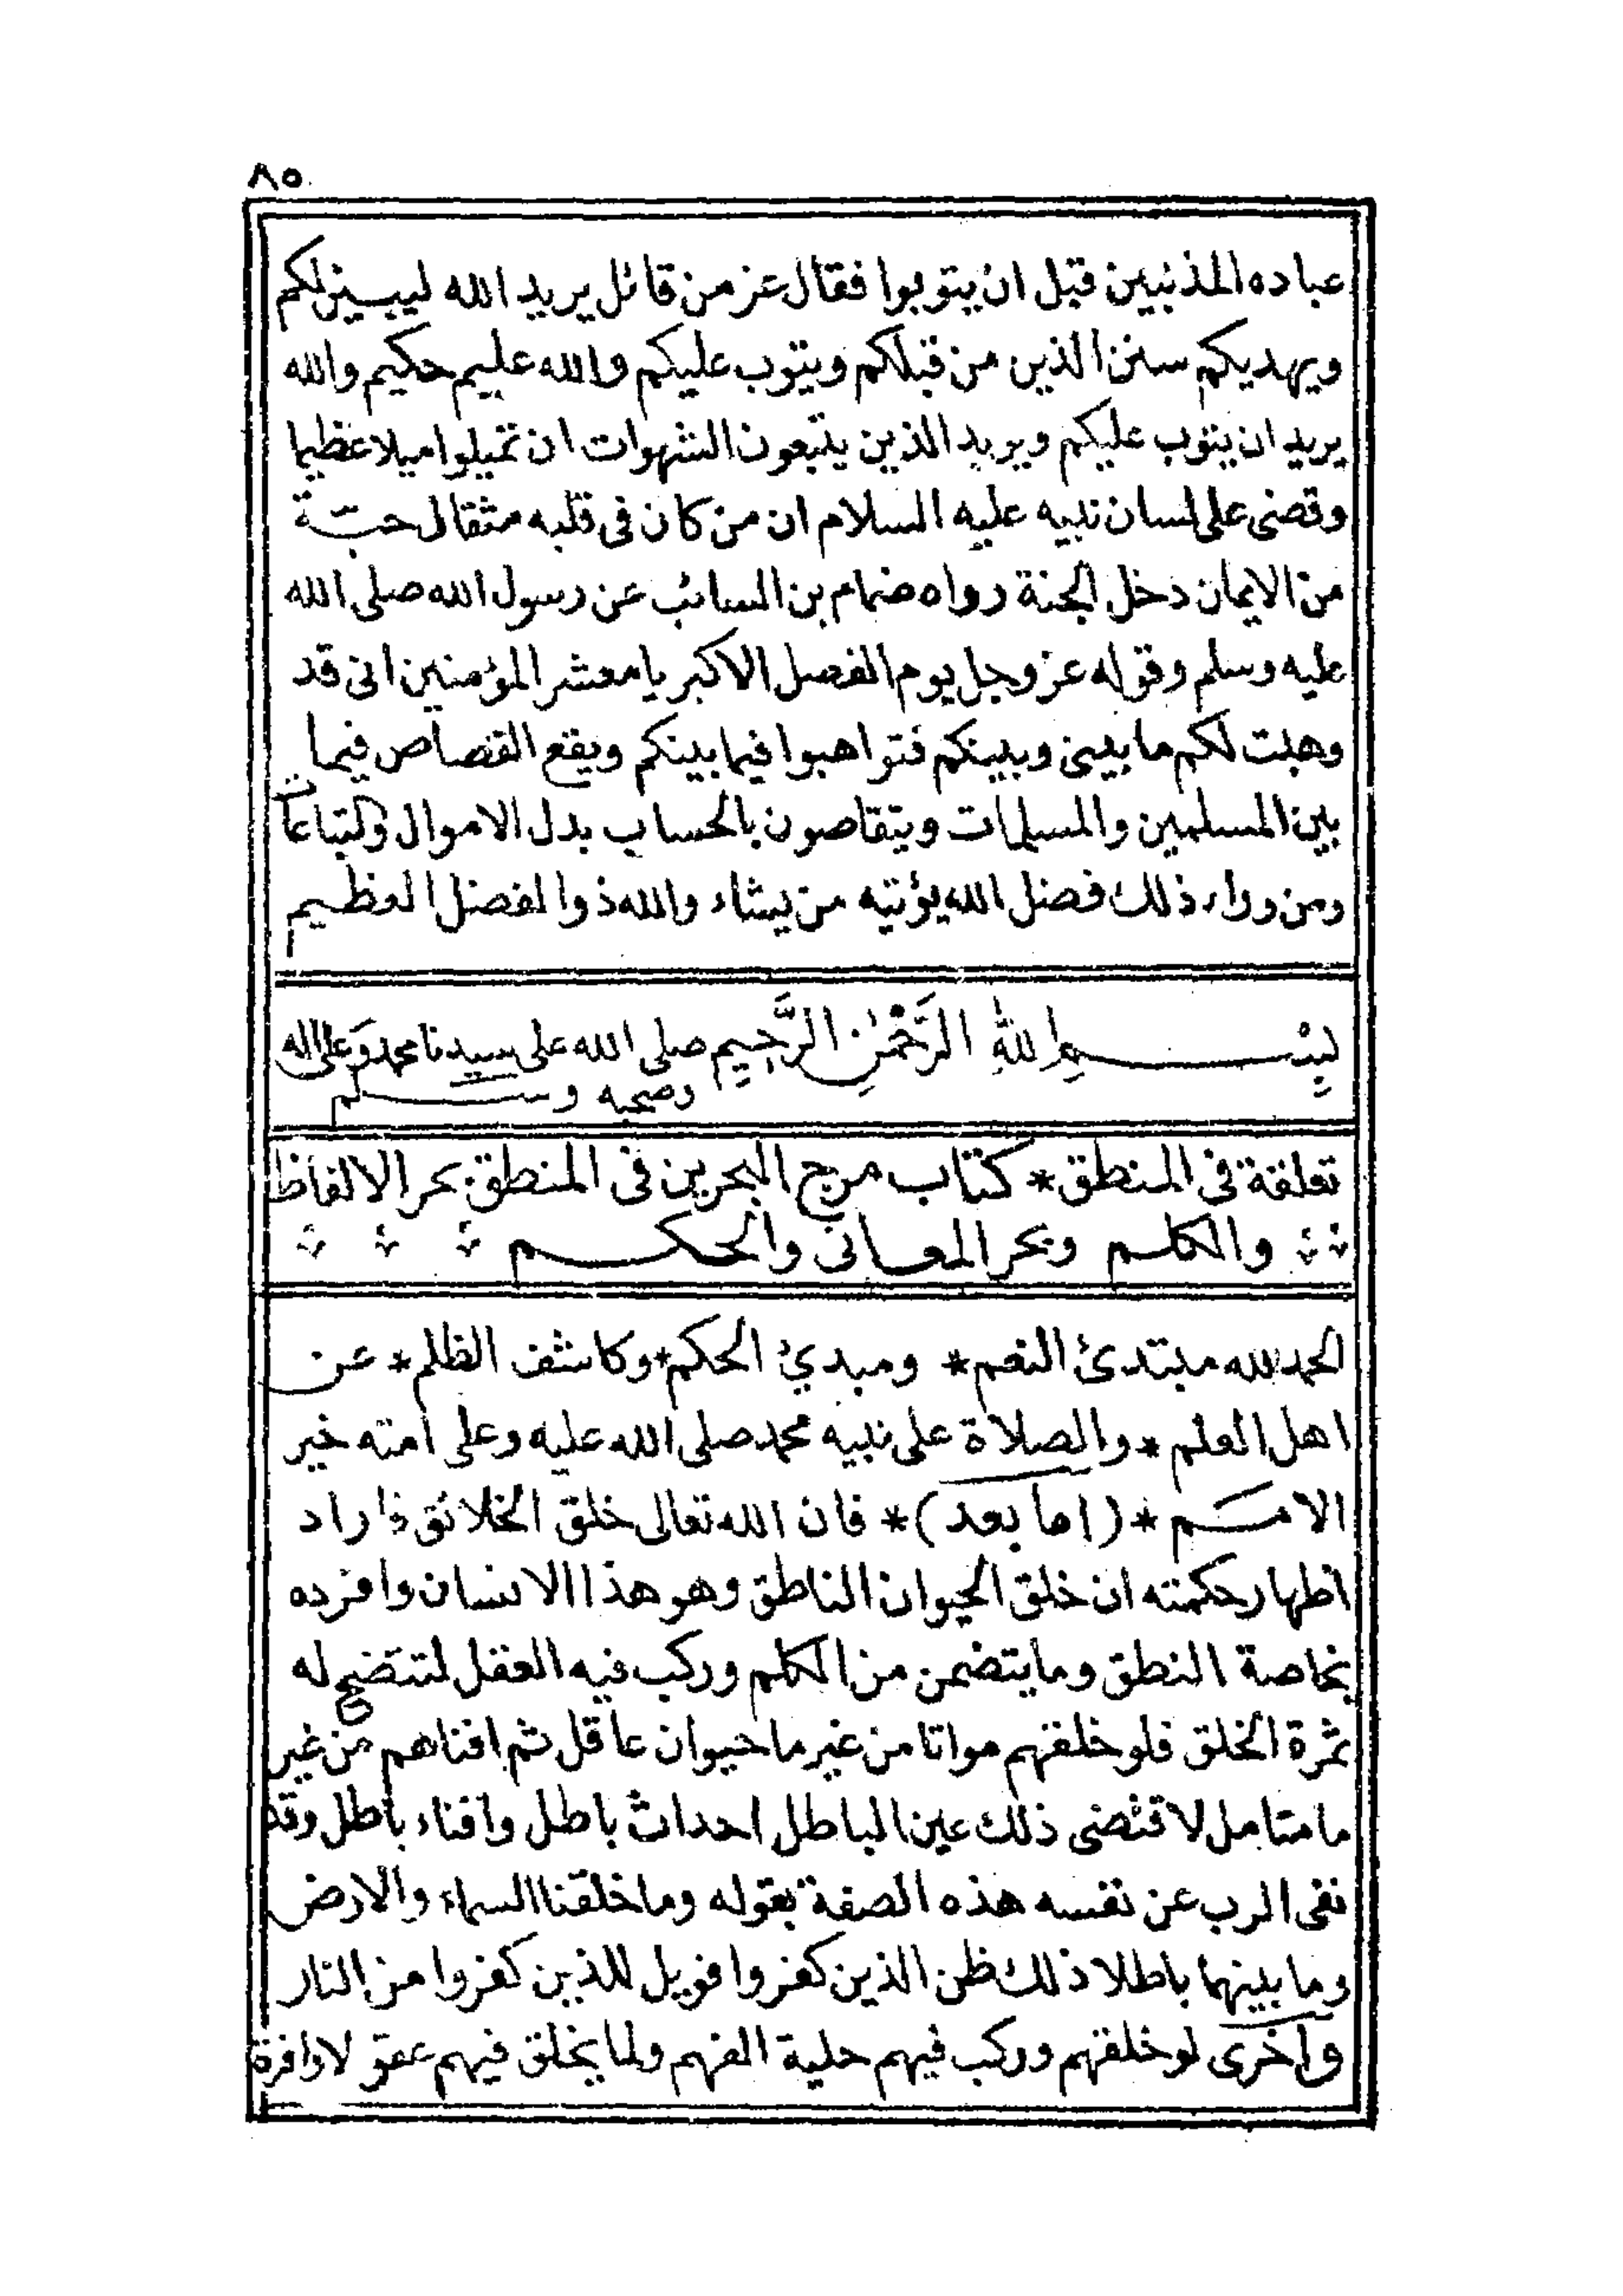 ٨٥
عباده المذنبين قبل ان يتوبوا فقال عز من قائل يريد الله ليبين لكم
ويهديكم سنن الذين من قبلكم ويتوب عليكم والله عليم حكيم والله
يريد ان يتوب عليكم ويريد الذين يتبعون الشهوات ان تميلوا ميلا عظيما
وقضى على لسان نبيه عليه السلام ان من كان فى قلبه مثقال حبة
من الايمان دخل الجنة رواه ضمام بن السائب عن رسول الله صلى الله
عليه وسلم وقوله عز وجل يوم الفصل الاكبر يا معشر المؤمنين انى قد
وهبت لكم ما بينى وبينكم فتواهبوا فيما بينكم ويقع القصاص فيما
بين المسلمين والمسلمات ويتقاصون بالحساب بدل الاموال والتباعات
ومن وراء ذلك فضل الله يؤتيه من يشاء والله ذو الفضل العظيم
بِسْمِ اللهِ الرَّحْمٰنِ الرَّحِيمِ صلى الله على سيدنا محمد وَعلى اله
وصحبه وسلم
تعلقة فى المنطق * كتاب مرج البحرين فى المنطق بحر الالفاظ
والكلم وبحر المعانى والحكم
الحمد لله مبتدئ النعم * ومبدئ الحكم * وكاشف الظلم * عن
اهل العلم * والصلاة على نبيه محمد صلى الله عليه وعلى امته خير
الامم * (اما بعد) * فان الله تعالى خلق الخلائق فاراد
اظهار حكمته ان خلق الحيوان الناطق وهو هذا الانسان وافرده
بخاصة النطق وما يتضمن من الكلم وركب فيه العقل لتتضح له
ثمرة الخلق فلو خلقهم مواتا من غير ما حيوان عاقل ثم افناهم من غير
ما متامل لاقتضى ذلك عين الباطل احداث باطل وافناء باطل وقد
نفى الرب عن نفسه هذه الصفة بقوله وما خلقنا السماء والارض
وما بينهما باطلا ذلك ظن الذين كفروا فويل للذين كفروا من النار
واخرى لو خلقهم وركب فيهم حلية الفهم ولما يخلق فيهم عقولا وافرة